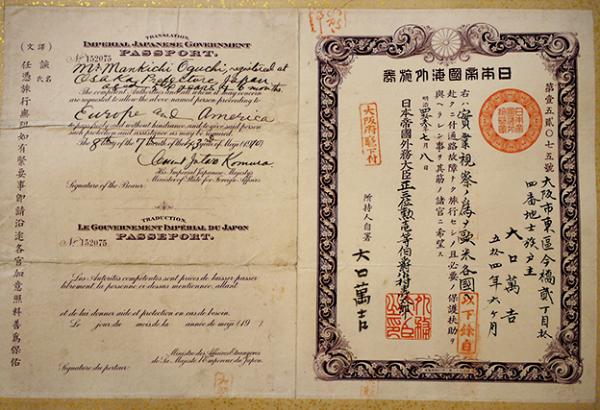 TRANSLATION.
IMPERIAL JAPANESE GOVERNMENT
PASSPORT.
№ 152075
Mr. Mankichi Oguchi, registered at
Osaka Prefecture, Japan
aged 54 years & 6 months
The competent Authorities and all whom it may concern
are requested to allow the above named person proceeding to
Europe and America
to pass freely and without hindrance and to give said person
such protection and assistance as may be required.
The 8 day of the 7 month of the 43 year of Meiji (1910)
Count Jutaro Komura
His Imperial Japanese Majesty's
Minister of State for Foreign Affairs.
Signature of the Bearer:
TRADUCTION.
LE GOUVERNEMENT IMPÉRIAL DU JAPON
PASSEPORT.
№ 152075
Les Autorités compétentes sont priées de laisser passer
librement la personne ci-dessus mentionnée, allant
et de lui donner aide et protection en cas de besoin.
Le jour du mois de la année de meiji (19 )
Ministre des Affaires Étrangères
de Sa Majesté l'Empereur du Japon.
Signature du porteur:
(譯文)
諱
氏名
任憑旅行無阻如有緊要事即請沿途各官加意照料善為保佑
日本帝國海外旅券
第壹五貳〇七五號
大阪市東區今橋貳丁目
四番地士族戶主
大口萬吉
五拾四年六ヶ月
右ハ實業視察ノ為メ歐米各國
以下餘白
赴クニ付通路故障ナク旅行セシメ且必要ノ保護扶助ヲ
與ヘラレン事ヲ其筋ノ諸官ニ希望ス
明治四拾參年七月八日
大阪府廳下付
日本帝國外務大臣正二位勳一等伯爵小村壽太郎
外務大臣之印
所持人自署
大口萬吉